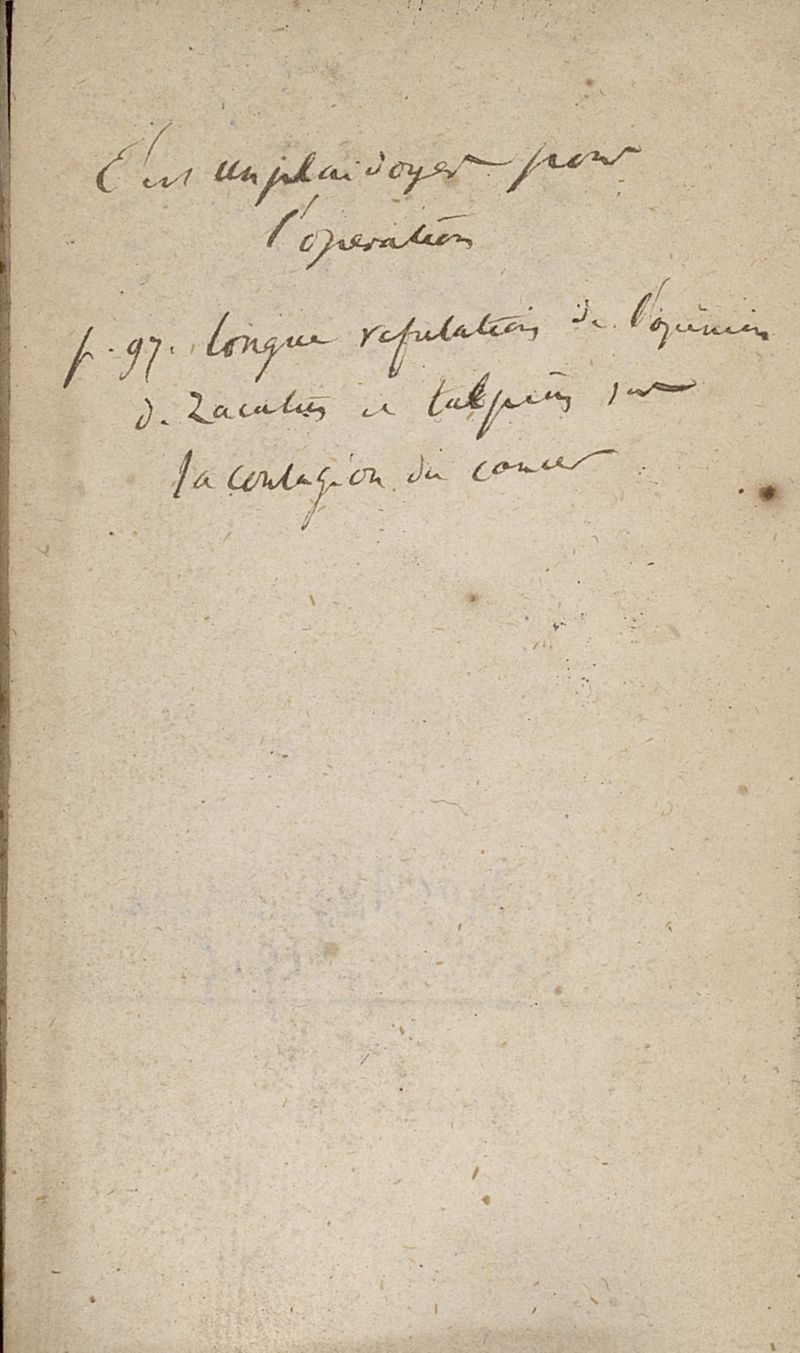 C'est un plaidoyer pour
l'operation
p. 97. longue refutation de l'opinion
de Zacutus et tulpius sur
la contagion du cancer